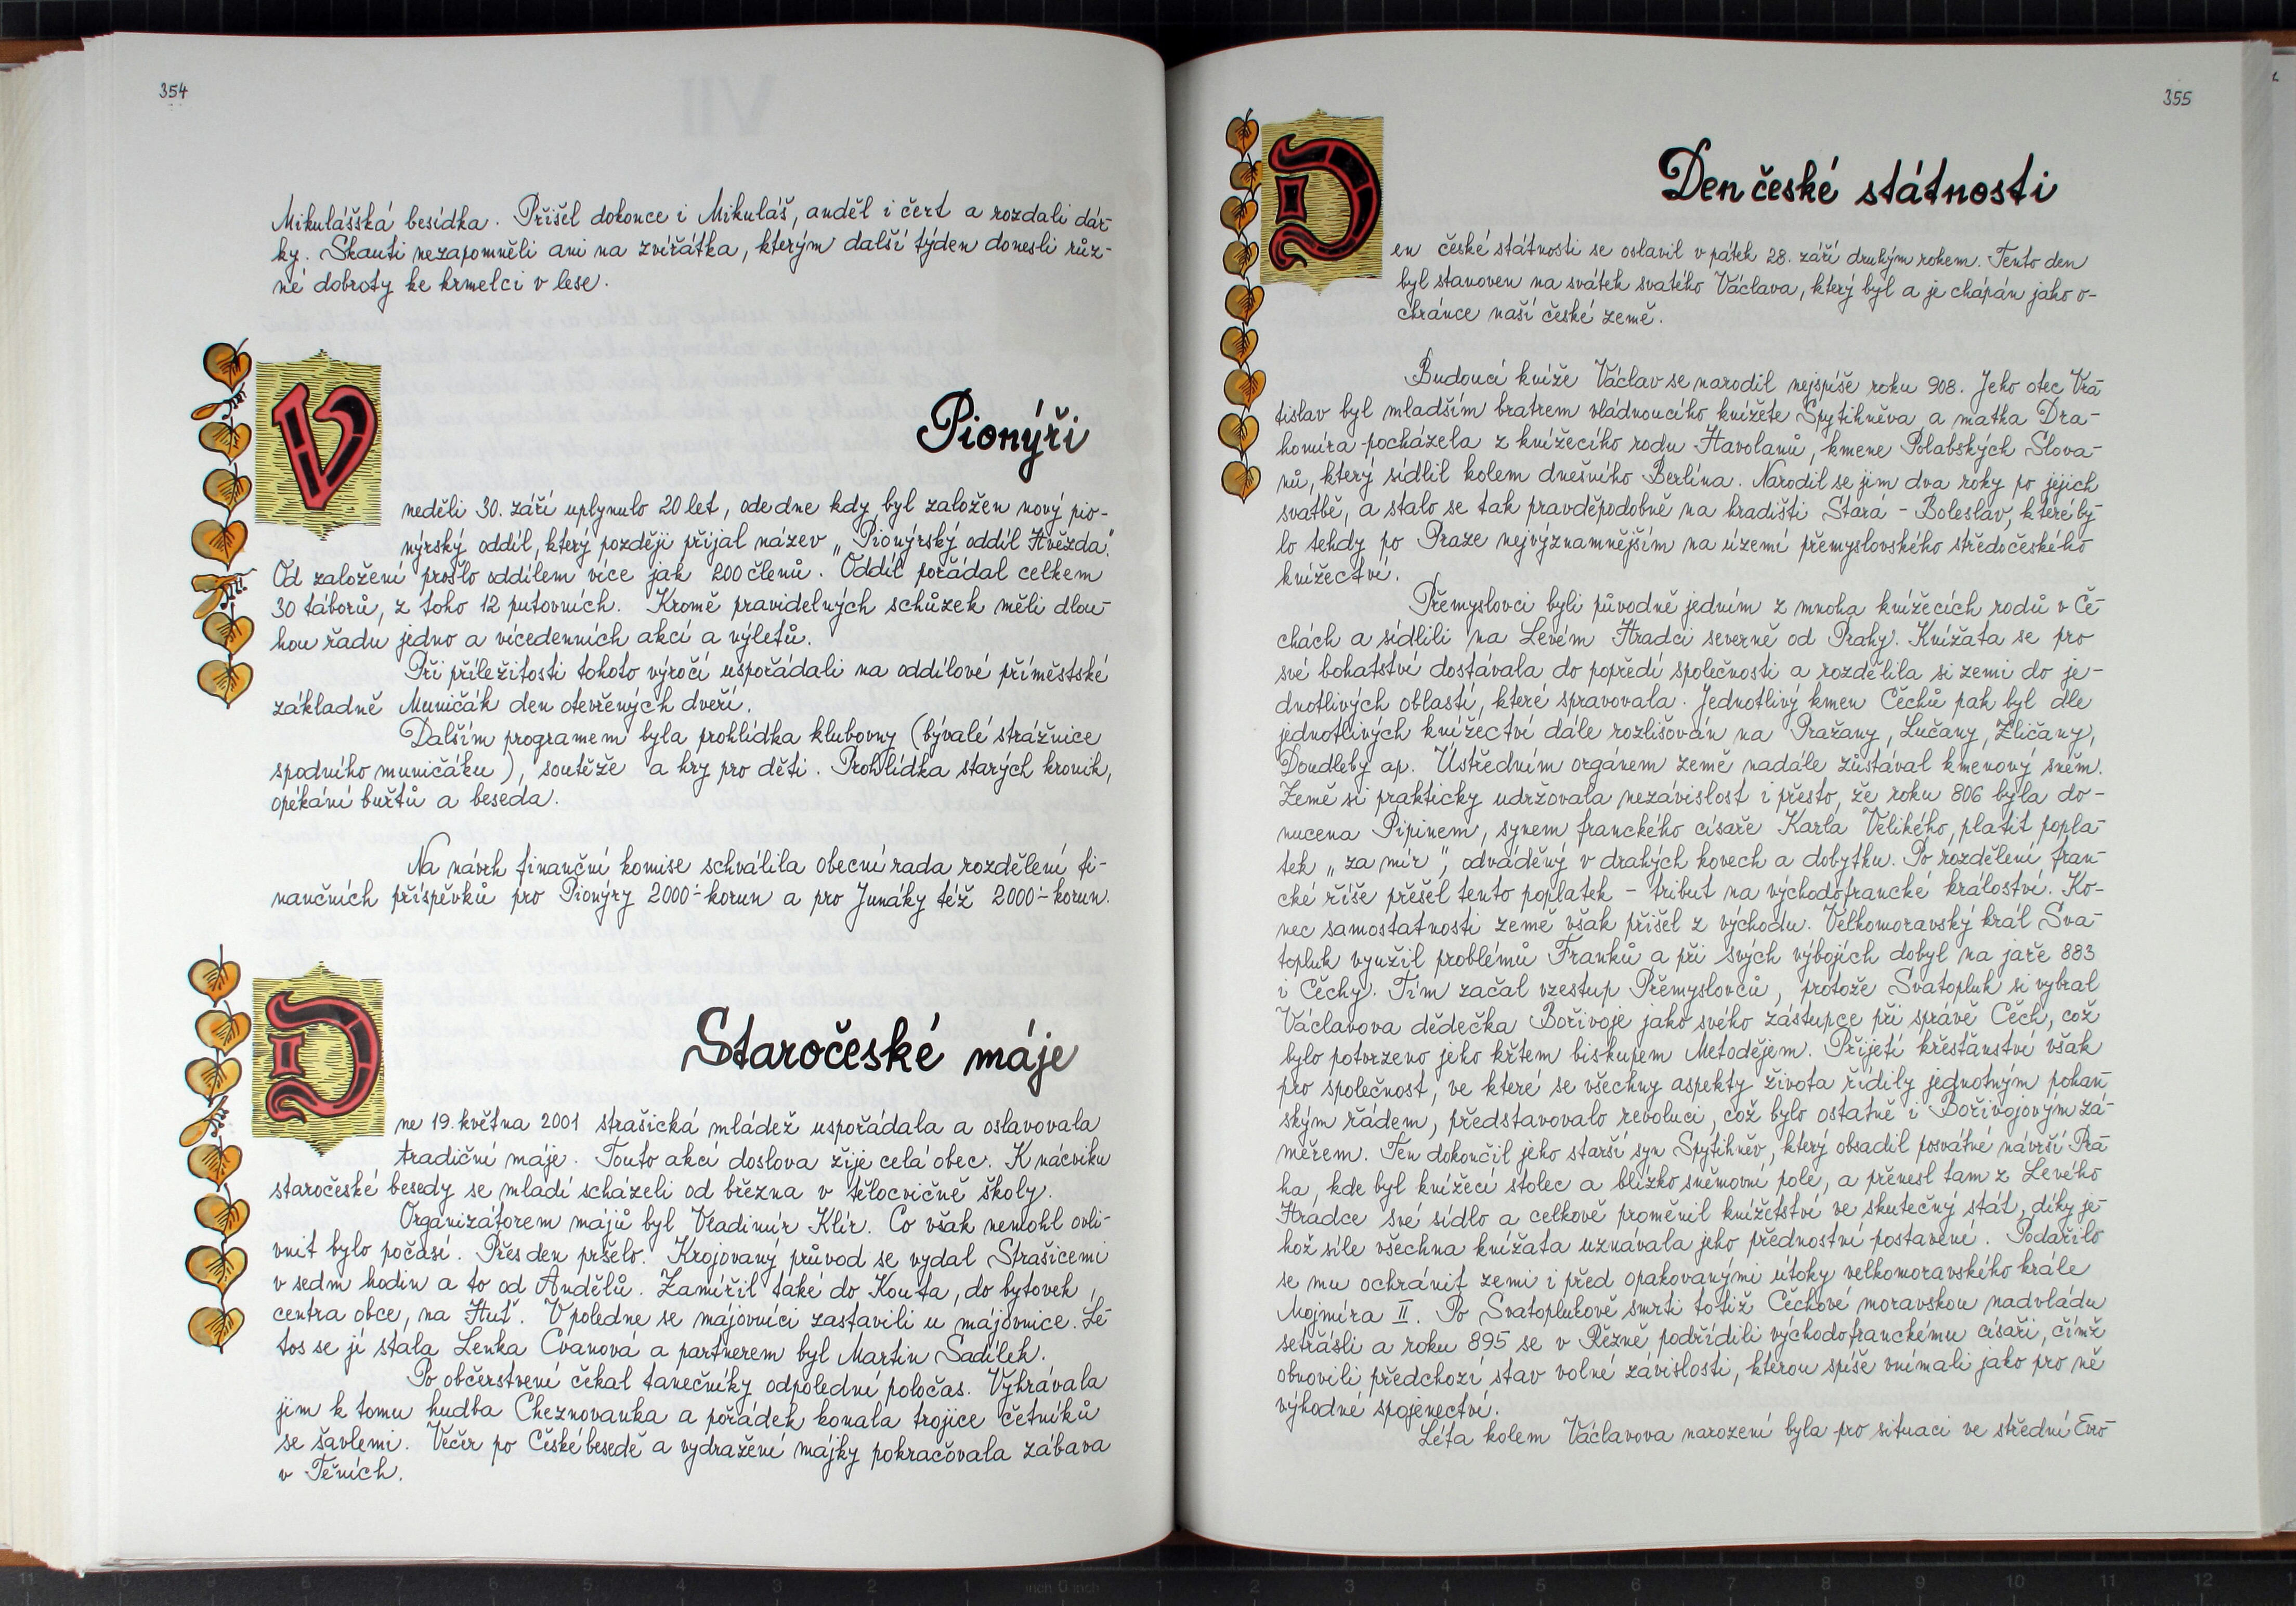 354
Mikulášská besídka. Přišel dokonce i Mikuláš, anděl i čert a rozdali dár-
ky. Skauti nezapomněli ani na zvířátka, kterým další týden donesli růz-
né dobroty ke krmelci v lese.
Pionýři
V neděli 30. září uplynulo 20 let, ode dne kdy byl založen nový pio-
nýrský oddíl, který později přijal název „Pionýrský oddíl Hvězda“.
Od založení prošlo oddílem více jak 200 členů. Oddíl pořádal celkem
30 táborů, z toho 12 putovních. Kromě pravidelných schůzek měli dlou-
hou řadu jedno a vícedenních akcí a výletů.
Při příležitosti tohoto výročí uspořádali na oddílové příměstské
základně Muničák den otevřených dveří.
Dalším programem byla prohlídka klubovny (bývalé strážnice
spodního muničáku), soutěže a hry pro děti. Prohlídka starých kronik,
opékání buřtů a beseda.
Na návrh finanční komise schválila obecní rada rozdělení fi-
nančních příspěvků pro Pionýry 2000.- korun a pro Junáky též 2000.- korun.
Staročeské máje
Dne 19. května 2001 strašická mládež uspořádala a oslavovala
tradiční máje. Touto akcí doslova žije celá obec. K nácviku
staročeské besedy se mladí scházeli od března v tělocvičně školy.
Organizátorem májů byl Vladimír Klír. Co však nemohl ovli-
vnit bylo počasí. Přes den pršelo. Krojovaný průvod se vydal Strašicemi
v sedm hodin a to od Andělů. Zamířil také do Kouta, do bytovek,
centra obce, na Huť. V poledne se májovníci zastavili u májovnice. Le-
tos se jí stala Lenka Cvanová a partnerem byl Martin Sadílek.
Po občerstvení čekal tanečníky odpolední poločas. Vyhrávala
jim k tomu hudba Cheznovanka a pořádek konala trojice četníků
se šavlemi. Večer po České besedě a vydražení májky pokračovala zábava
v Těních.
355
Den české státnosti
Den české státnosti se oslavil v pátek 28. září druhým rokem. Tento den
byl stanoven na svátek svatého Václava, který byl a je chápán jako o-
chránce naší české země.
Budoucí kníže Václav se narodil nejspíše roku 908. Jeho otec Vra-
tislav byl mladším bratrem vládnoucího knížete Spytihněva a matka Dra-
homíra pocházela z knížecího rodu Havolanů, kmene Polabských Slova-
nů, který sídlil kolem dnešního Berlína. Narodil se jim dva roky po jejich
svatbě, a stalo se tak pravděpodobně na hradišti Stará - Boleslav, které by-
lo tehdy po Praze nejvýznamnějším na území přemyslovského středočeského
knížectví.
Přemyslovci byli původně jedním z mnoha knížecích rodů v Če-
chách a sídlili na Levém Hradci severně od Prahy. Knížata se pro
své bohatství dostávala do popředí společnosti a rozdělila si zemi do je-
dnotlivých oblastí, které spravovala. Jednotlivý kmen Čechů pak byl dle
jednotlivých knížectví dále rozlišován na Pražany, Lučany, Zličany,
Doudleby ap. Ústředním orgánem země nadále zůstával kmenový sněm.
Země si prakticky udržovala nezávislost i přesto, že roku 806 byla do-
nucena Pipinem, synem franckého císaře Karla Velikého, platit popla-
tek „za mír“, odváděný v drahých kovech a dobytku. Po rozdělení fran-
cké říše přešel tento poplatek - tribut na východofrancké království. Ko-
nec samostatnosti země však přišel z východu. Velkomoravský král Sva-
topluk využil problémů Franků a při svých výbojích dobyl na jaře 883
i Čechy. Tím začal vzestup Přemyslovců, protože Svatopluk si vybral
Václavova dědečka Bořivoje jako svého zástupce při správě Čech, což
bylo potvrzeno jeho křtem biskupem Metodějem. Přijetí křesťanství však
pro společnost, ve které se všechny aspekty života řídily jednotným pohan-
ským řádem, představovalo revoluci, což bylo ostatně i Bořivojovým zá-
měrem. Ten dokončil jeho starší syn Spytihněv, který obsadil posvátné návrší Pra-
ha, kde byl knížecí stolec a blízko sněmovní pole, a přenesl tam z Levého
Hradce své sídlo a celkově proměnil knížetství ve skutečný stát, díky je-
hož síle všechna knížata uznávala jeho přednostní postavení. Podařilo
se mu ochránit zemi i před opakovanými útoky velkomoravského krále
Mojmíra II. Po Svatoplukově smrti totiž Čechové moravskou nadvládu
setřásli a roku 895 se v Řezně podřídili východofranckému císaři, čímž
obnovili předchozí stav volné závislosti, kterou spíše vnímali jako pro ně
výhodné spojenectví.
Léta kolem Václavova narození byla pro situaci ve střední Evro-